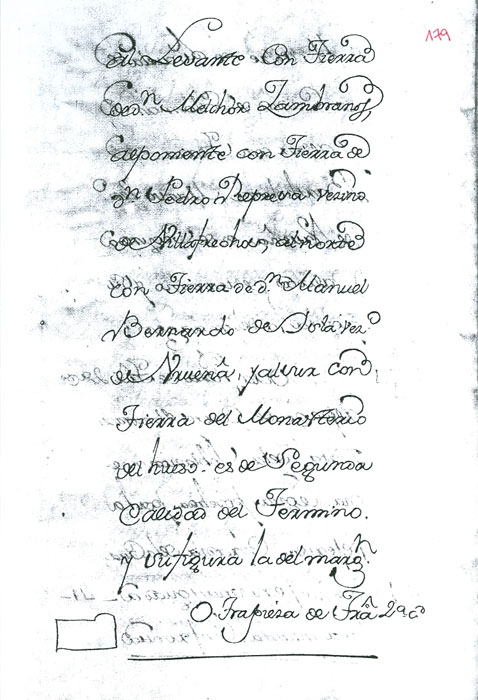 179
al Levante con Tierra
de Dn Melchor Zambranos,
al poniente con Tierra de
Dn Pedro Represa vezino
de Villafrechos, al Norte
con Tierra de Dn Manuel
Bernardo de vezo
de y al sur con
Tierra del Monasterio
del hueso. es de Segunda
Calidad del Termino.
y su figura la del margn
O Trapieza de Tra 2as